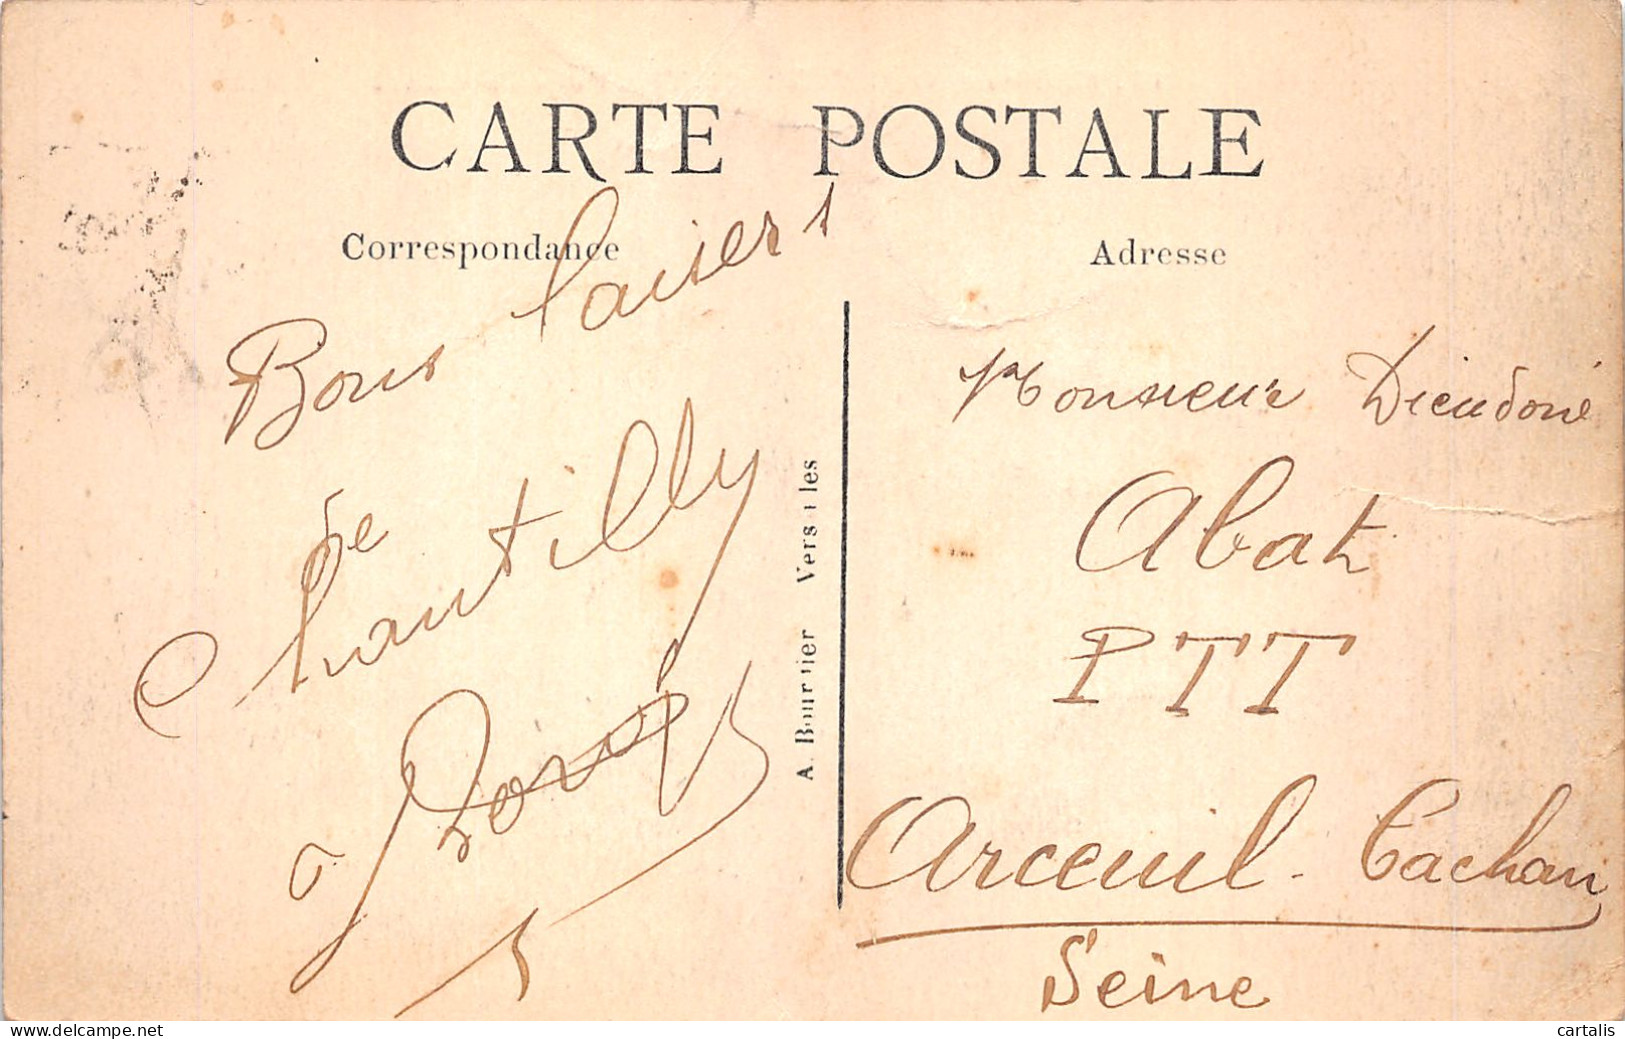 CARTE POSTALE
Correspondance
Adresse
Bons baisers
de
Chantilly
A. Bourdier Versailles
Monsieur Dieudoné
Abat
PTT
Arceuil-Cachan
Seine
delcampe.net
cartalis